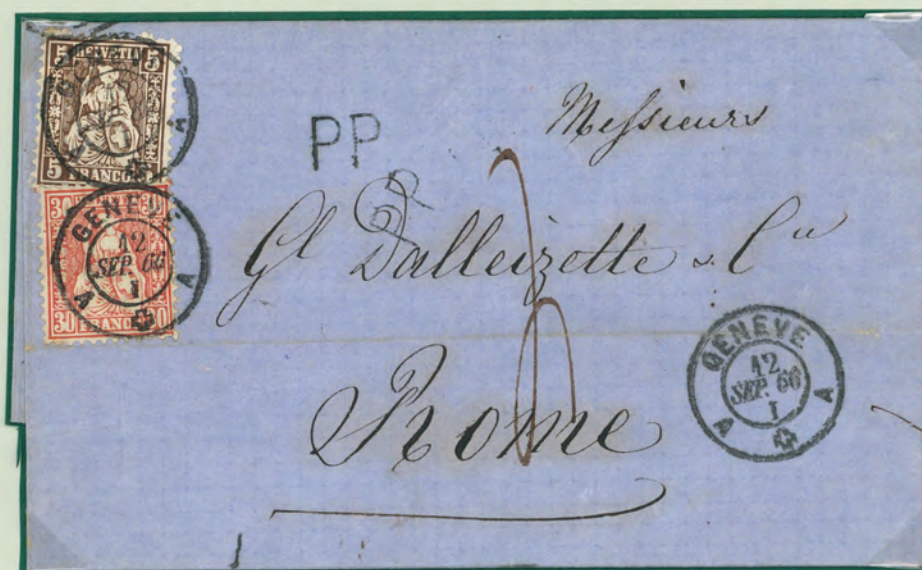 5 HELVETIA 5
5 FRANCO 5
30 30
30 FRANCO 30
GENEVE
12
SEP. 66
I
A A
PP
Messieurs
Gl Dalleizette & Cie
Rome
GENEVE
12
SEP. 66
I
A A